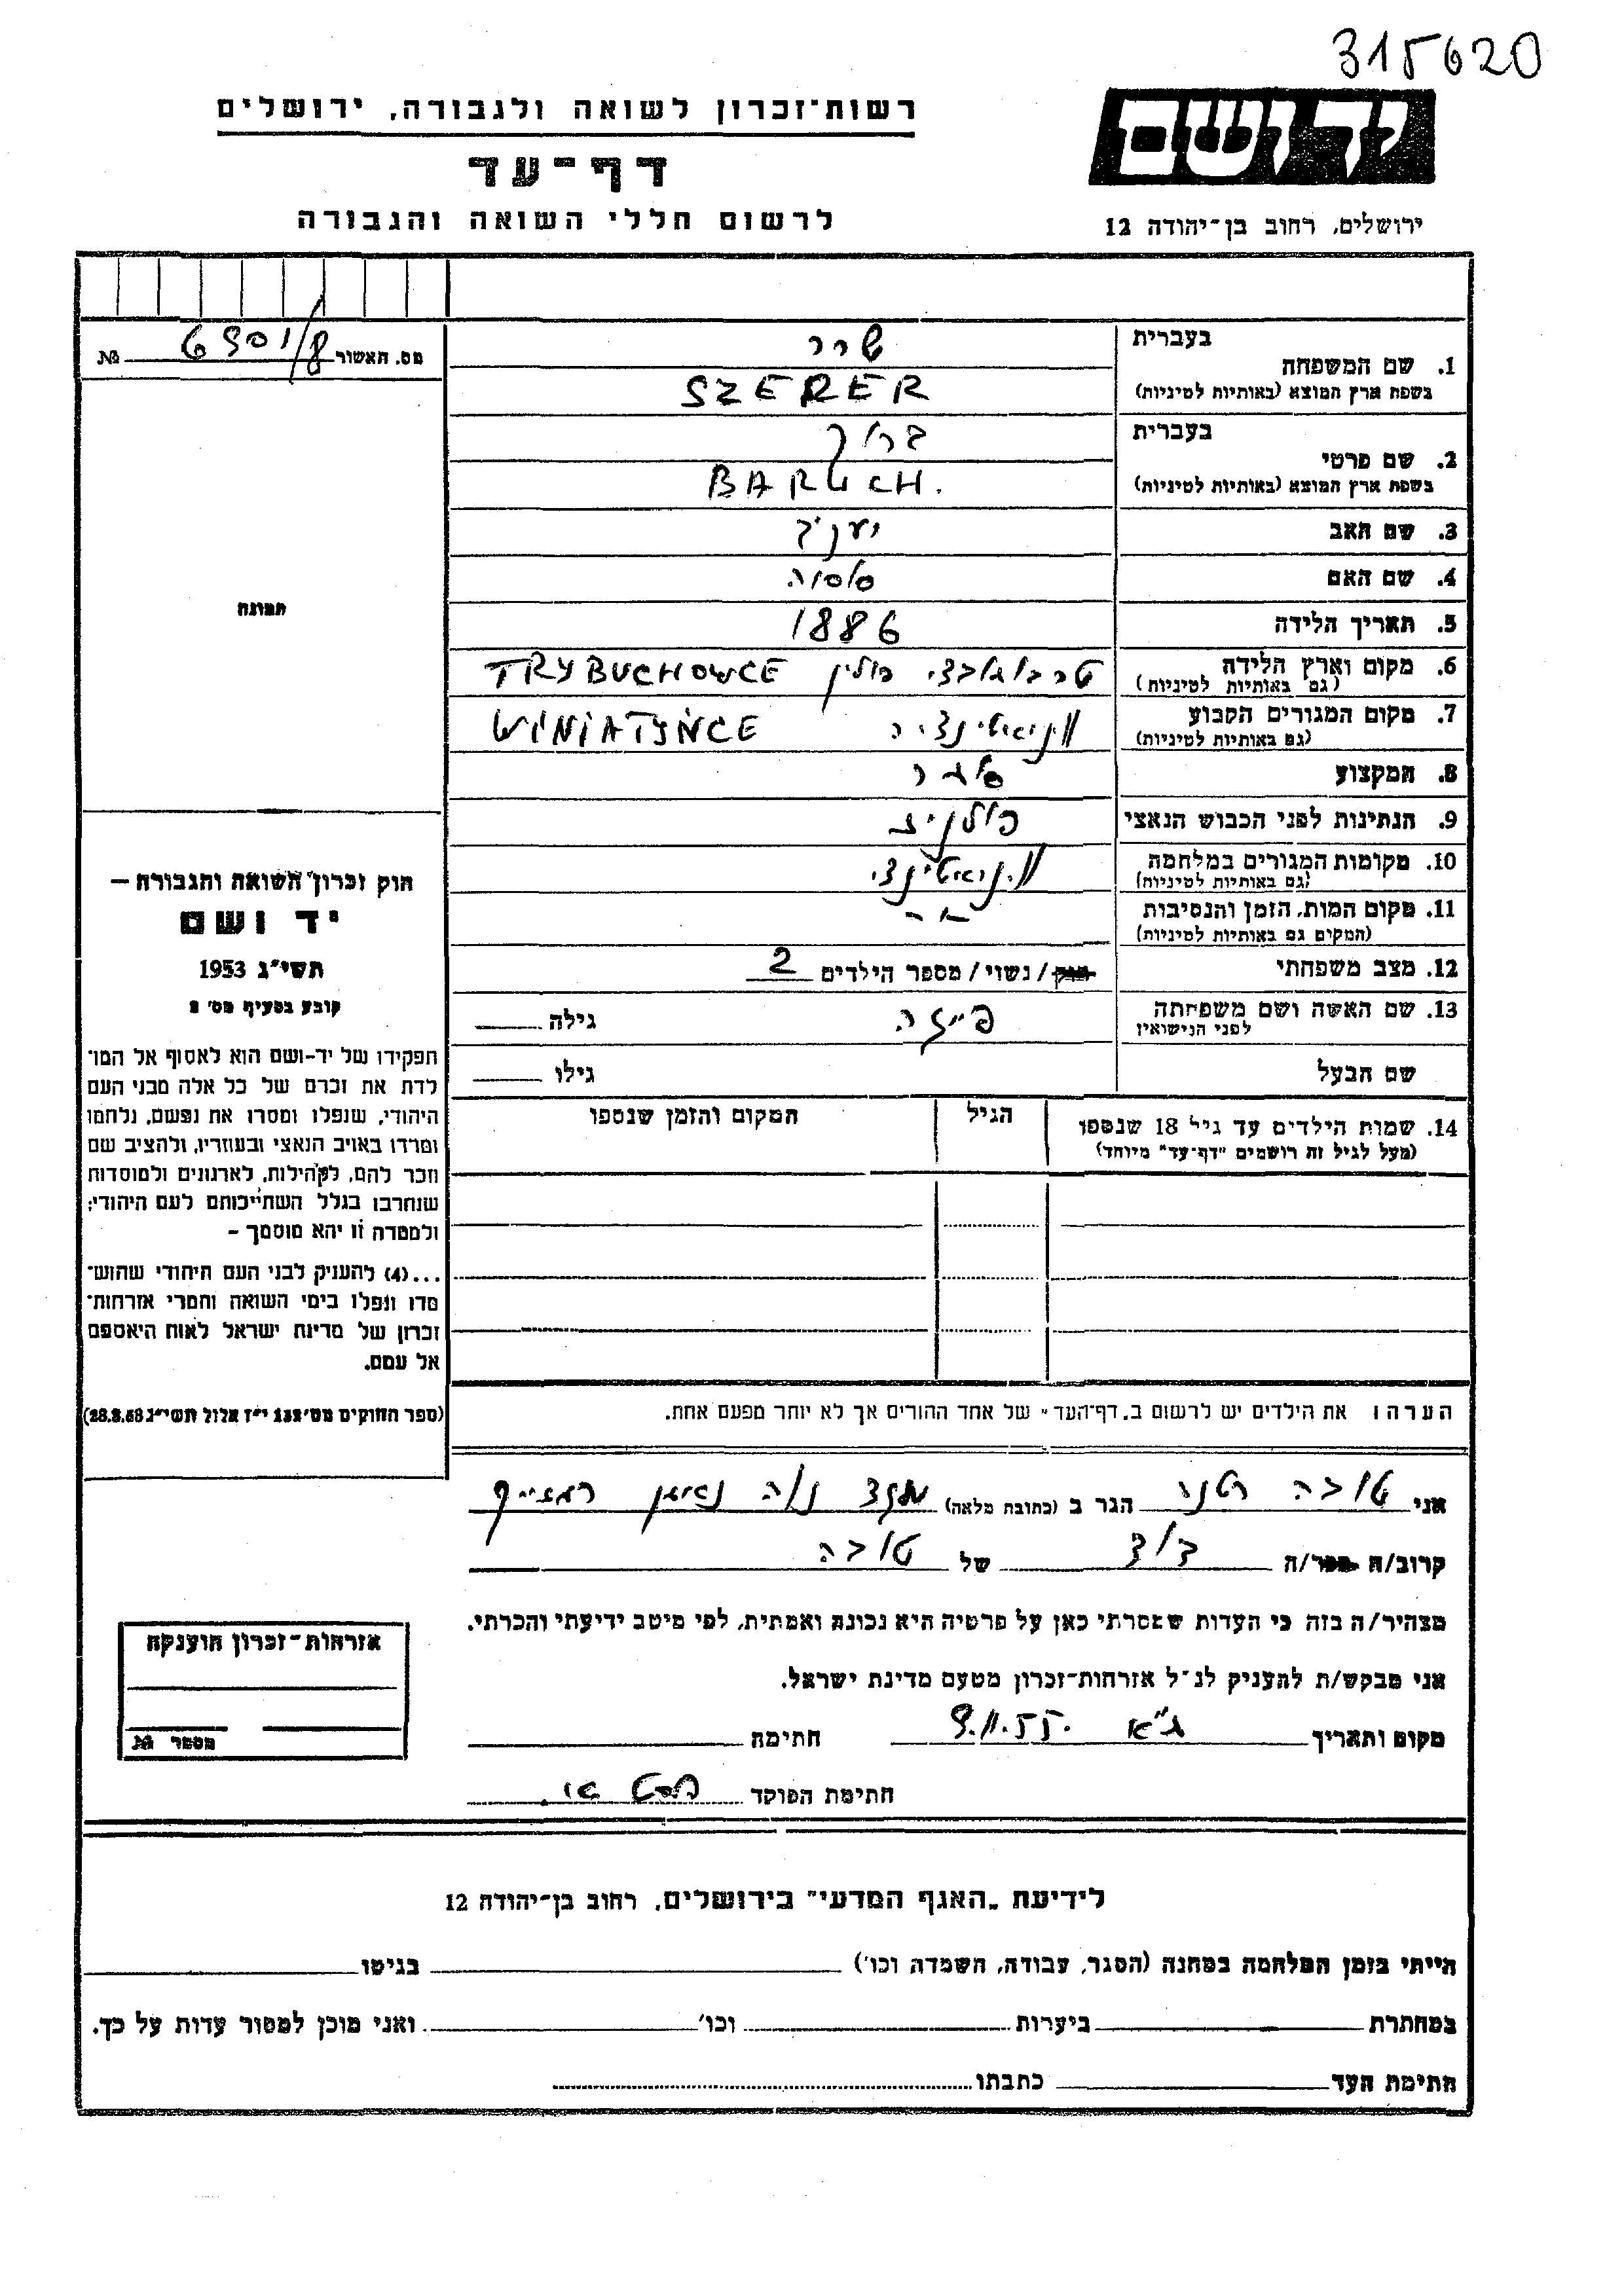 315620
רשות־זכרון לשואה ולגבורה, ירושלים
דף־עד
לרשום חללי השואה והגבורה
יד ושם
ירושלים, רחוב בן־יהודה 12
מס. האשור 6901/8 №
תמונה
חוק זכרון השואה והגבורה —
יד ושם
תשי״ג 1953
קובע בסעיף מס׳ 2
תפקידו של יד־ושם הוא לאסוף אל המו־
לדת את זכרם של כל אלה מבני העם
היהודי, שנפלו ומסרו את נפשם, נלחמו
ומרדו באויב הנאצי ובעוזריו, ולהציב שם
וזכר להם, לקהילות, לארגונים ולמוסדות
שנחרבו בגלל השתייכותם לעם היהודי;
ולמטרה זו יהא מוסמך –
...(4) להעניק לבני העם היהודי שהוש־
מדו ונפלו בימי השואה והמרי אזרחות־
זכרון של מדינת ישראל לאות היאספם
אל עמם.
(ספר החוקים מס׳ 132 י״ז אלול תשי״ג 28.8.53)
בעברית שרר
1. שם המשפחה
בשפת ארץ המוצא (באותיות לטיניות) SZERER
בעברית ברוך
2. שם פרטי
בשפת ארץ המוצא (באותיות לטיניות) BARUCH.
3. שם האב
4. שם האם
5. תאריך הלידה 1886
6. מקום וארץ הלידה פולין TRYBUCHOWCE
(גם באותיות לטיניות)
7. מקום המגורים הקבוע WINIATYNCE
(גם באותיות לטיניות)
8. המקצוע סוחר
9. הנתינות לפני הכבוש הנאצי
10. מקומות המגורים במלחמה
(גם באותיות לטיניות)
11. מקום המות, הזמן והנסיבות
(המקום גם באותיות לטיניות)
12. מצב משפחתי רווק/ נשוי/ מספר הילדים 2
13. שם האשה ושם משפחתה גילה
לפני הנישואין
שם הבעל גילו
14. שמות הילדים עד גיל 18 שנספו הגיל המקום והזמן שנספו
(מעל לגיל זה רושמים "דף־עד" מיוחד)
הערה: את הילדים יש לרשום ב„דף־העד״ של אחד ההורים אך לא יותר מפעם אחת.
אני טובה הגר ב (כתובת מלאה)
קרוב/ה מכר/ה דוד של טובה
מצהיר/ה בזה כי העדות שמסרתי כאן על פרטיה היא נכונה ואמתית, לפי מיטב ידיעתי והכרתי.
אני מבקש/ת להעניק לנ״ל אזרחות־זכרון מטעם מדינת ישראל.
מקום ותאריך 9.11.55 חתימה
חתימת הפוקד
אזרחות־זכרון הוענקה
מספר №
לידיעת „האגף המדעי״ בירושלים, רחוב בן־יהודה 12
הייתי בזמן המלחמה במחנה (הסגר, עבודה, השמדה וכו׳) בגיטו
במחתרת ביערות וכו׳ ואני מוכן למסור עדות על כך.
חתימת העד כתבתו